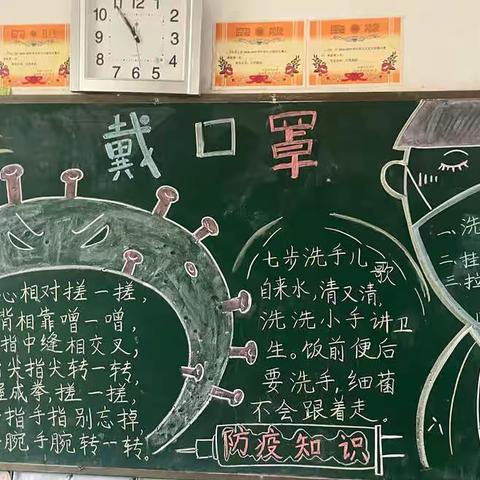 戴口罩
心相对搓一搓,
背相靠噌一噌,
指中缝相交叉,
尖指尖转一转,
成拳,搓一搓,
指手指别忘掉,
腕手腕转一转。
七步洗手儿歌
自来水,清又清,
洗洗小手讲卫
生。饭前便后
要洗手,细菌
不会跟着走。
防疫知识
一、洗
二、挂
三、拉
六